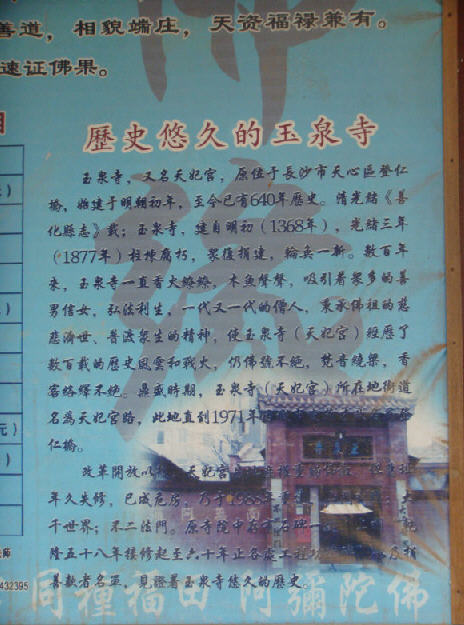 善道，相貌端庄，天资福禄兼有。
速证佛果。
歷史悠久的玉泉寺
玉泉寺，又名天妃宫，原位于長沙市天心區登仁
橋，始建于明朝初年，至今已有640年歷史。清光緒《善
化縣志》載；玉泉寺，建自明初（1368年），光緒三年
（1877年）柱棟腐朽，眾復捐建，輪奐一新。數百年
來，玉泉寺一直香火繚繚，木魚聲聲，吸引着眾多的善
男信女，弘法利生，一代又一代的僧人，秉承佛祖的慈
悲濟世、普渡眾生的精神，使玉泉寺（天妃宫）經歷了
數百載的歷史風雲和戰火，仍佛號不絶，梵音繞梁，香
客絡繹不絶。鼎盛時期，玉泉寺（天妃宫）所在地街道
名為天妃宫路，此地直到1971年
仁橋。
改革開放以 天妃宫
年久失修，已成危房，乃于1988年
千世界；不二法門。原寺院中存 石碑一
隆五十八年接修起至六十年止各處工程 捐
善款者名區，見證着玉泉寺悠久的歷史。
同種福田 阿彌陀佛
432395